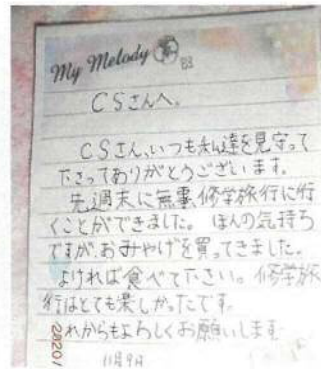 My Melody
CSさんへ。
CSさん、いつも私達を見守って
下さってありがとうございます。
先週末に無事、修学旅行に行
くことができました。ほんの気持ち
ですが、おみやげを買ってきました。
よければ食べて下さい。修学旅
行はとても楽しかったです。
これからもよろしくお願いします
11月9日